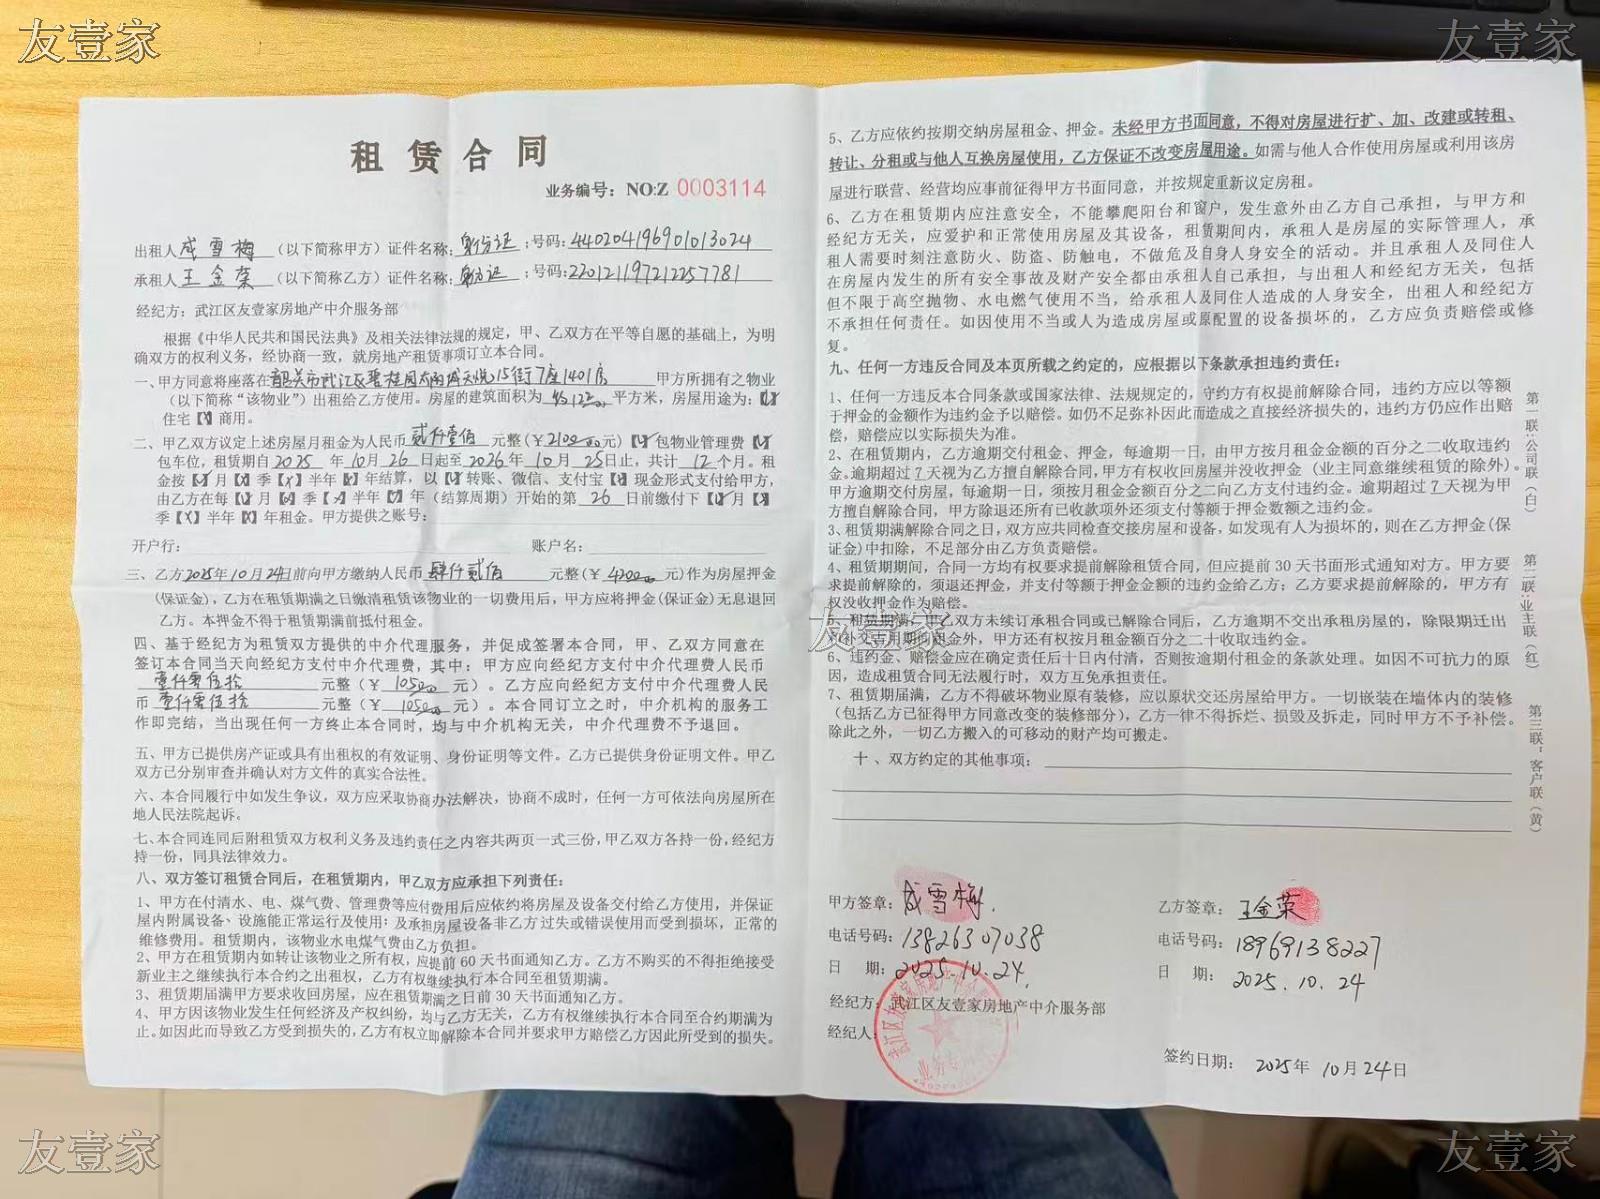 友壹家
友壹家
租赁合同
业务编号：NO:Z 0003114
出租人 成雪梅 （以下简称甲方）证件名称：身份证；号码：440204196901013024
承租人 王金荣 （以下简称乙方）证件名称：身份证；号码：220121197212257781
经纪方：武江区友壹家房地产中介服务部
根据《中华人民共和国民法典》及相关法律法规的规定，甲、乙双方在平等自愿的基础上，为明
确双方的权利义务，经协商一致，就房地产租赁事项订立本合同。
一、甲方同意将座落在韶关市武江区碧桂园太阳城天悦15街7座1401房 甲方所拥有之物业
（以下简称“该物业”）出租给乙方使用。房屋的建筑面积为 约122 平方米，房屋用途为：【√】
住宅【×】商用。
二、甲乙双方议定上述房屋月租金为人民币 贰仟壹佰 元整（￥2100.00元）【√】包物业管理费【√】
包车位，租赁期自 2025 年 10月 26 日起至 2026 年 10 月 25日止，共计 12 个月。租
金按【√】月【×】季【×】半年【×】年结算，以【√】转账、微信、支付宝【×】现金形式支付给甲方，
由乙方在每【√】月【×】季【×】半年【×】年（结算周期）开始的第 26 日前缴付下【√】月【×】
季【×】半年【×】年租金。甲方提供之账号：
开户行： 账户名：
三、乙方2025年10月24日前向甲方缴纳人民币 肆仟贰佰 元整（￥ 4200.00 元）作为房屋押金
（保证金），乙方在租赁期满之日缴清租赁该物业的一切费用后，甲方应将押金（保证金）无息退回
乙方。本押金不得于租赁期满前抵付租金。
四、基于经纪方为租赁双方提供的中介代理服务，并促成签署本合同，甲、乙双方同意在
签订本合同当天向经纪方支付中介代理费，其中：甲方应向经纪方支付中介代理费人民币
壹仟零伍拾 元整（￥ 1050.00 元）。乙方应向经纪方支付中介代理费人民
币 壹仟零伍拾 元整（￥ 1050.00 元）。本合同订立之时，中介机构的服务工
作即完结，当出现任何一方终止本合同时，均与中介机构无关，中介代理费不予退回。
五、甲方已提供房产证或具有出租权的有效证明、身份证明等文件。乙方已提供身份证明文件。甲乙
双方已分别审查并确认对方文件的真实合法性。
六、本合同履行中如发生争议，双方应采取协商办法解决，协商不成时，任何一方可依法向房屋所在
地人民法院起诉。
七、本合同连同后附租赁双方权利义务及违约责任之内容共两页一式三份，甲乙双方各持一份，经纪方
持一份，同具法律效力。
八、双方签订租赁合同后，在租赁期内，甲乙双方应承担下列责任：
1、甲方在付清水、电、煤气费、管理费等应付费用后应依约将房屋及设备交付给乙方使用，并保证
屋内附属设备、设施能正常运行及使用；及承担房屋设备非乙方过失或错误使用而受到损坏，正常的
维修费用。租赁期内，该物业水电煤气费由乙方负担。
2、甲方在租赁期内如转让该物业之所有权，应提前60天书面通知乙方。乙方不购买的不得拒绝接受
新业主之继续执行本合约之出租权，乙方有权继续执行本合同至租赁期满。
3、租赁期届满甲方要求收回房屋，应在租赁期满之日前30天书面通知乙方。
4、甲方因该物业发生任何经济及产权纠纷，均与乙方无关，乙方有权继续执行本合同至合约期满为
止。如因此而导致乙方受到损失的，乙方有权立即解除本合同并要求甲方赔偿乙方因此所受到的损失。
5、乙方应依约按期交纳房屋租金、押金。未经甲方书面同意，不得对房屋进行扩、加、改建或转租、
转让、分租或与他人互换房屋使用，乙方保证不改变房屋用途。如需与他人合作使用房屋或利用该房
屋进行联营、经营均应事前征得甲方书面同意，并按规定重新议定房租。
6、乙方在租赁期内应注意安全，不能攀爬阳台和窗户，发生意外由乙方自己承担，与甲方和
经纪方无关，应爱护和正常使用房屋及其设备，租赁期间内，承租人是房屋的实际管理人，承
租人需要时刻注意防火、防盗、防触电，不做危及自身人身安全的活动。并且承租人及同住人
在房屋内发生的所有安全事故及财产安全都由承租人自己承担，与出租人和经纪方无关，包括
但不限于高空抛物、水电燃气使用不当，给承租人及同住人造成的人身安全，出租人和经纪方
不承担任何责任。如因使用不当或人为造成房屋或原配置的设备损坏的，乙方应负责赔偿或修
复。
九、任何一方违反合同及本页所载之约定的，应根据以下条款承担违约责任：
1、任何一方违反本合同条款或国家法律、法规规定的，守约方有权提前解除合同，违约方应以等额
于押金的金额作为违约金予以赔偿。如仍不足弥补因此而造成之直接经济损失的，违约方仍应作出赔
偿，赔偿应以实际损失为准。
2、在租赁期内，乙方逾期交付租金、押金，每逾期一日，由甲方按月租金金额的百分之二收取违约
金。逾期超过 7 天视为乙方擅自解除合同，甲方有权收回房屋并没收押金（业主同意继续租赁的除外）。
甲方逾期交付房屋，每逾期一日，须按月租金金额百分之二向乙方支付违约金。逾期超过 7 天视为甲
方擅自解除合同，甲方除退还所有已收款项外还须支付等额于押金数额之违约金。
3、租赁期满解除合同之日，双方应共同检查交接房屋和设备，如发现有人为损坏的，则在乙方押金（保
证金）中扣除，不足部分由乙方负责赔偿。
4、租赁期期间，合同一方均有权要求提前解除租赁合同，但应提前30天书面形式通知对方。甲方要
求提前解除的，须退还押金，并支付等额于押金金额的违约金给乙方；乙方要求提前解除的，甲方有
权没收押金作为赔偿。
5、租赁期满，甲乙双方未续订承租合同或已解除合同后，乙方逾期不交出承租房屋的，除限期迁出
和补交占用期间租金外，甲方还有权按月租金额百分之二十收取违约金。
友壹家
6、违约金、赔偿金应在确定责任后十日内付清，否则按逾期付租金的条款处理。如因不可抗力的原
因，造成租赁合同无法履行时，双方互免承担责任。
7、租赁期届满，乙方不得破坏物业原有装修，应以原状交还房屋给甲方。一切嵌装在墙体内的装修
（包括乙方已征得甲方同意改变的装修部分），乙方一律不得拆烂、损毁及拆走，同时甲方不予补偿。
除此之外，一切乙方搬入的可移动的财产均可搬走。
十、双方约定的其他事项：
第一联：公司联（白）
第二联：业主联（红）
第三联：客户联（黄）
甲方签章：成雪梅.
电话号码：13826307038
日 期：2025.10.24.
乙方签章：王金荣
电话号码：18969138227
日 期：2025.10.24
经纪方：武江区友壹家房地产中介服务部
经纪人：
武江区友壹家房地产中介服务部
业务专用章
签约日期： 2025年 10月24日
友壹家
友壹家